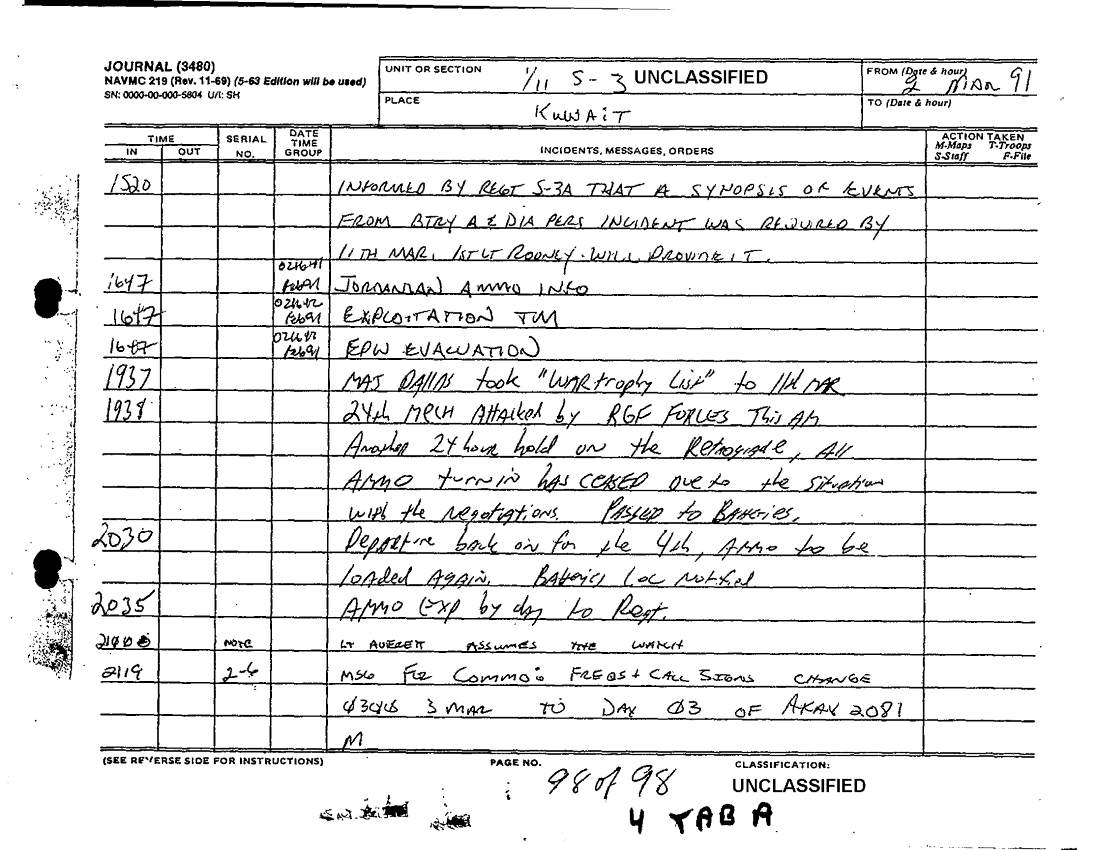 JOURNAL (3480)
NAVMC 219 (Rev. 11-69) (5-63 Edition will be used)
SN: 0000-00-000-5604 U/I: SH
UNIT OR SECTION 1/11 S-3 UNCLASSIFIED
FROM (Date & hour) 2 MAR 91
PLACE KUWAIT
TO (Date & hour)
TIME
IN OUT
SERIAL NO.
DATE TIME GROUP
INCIDENTS, MESSAGES, ORDERS
ACTION TAKEN
M-Maps T-Troops
S-Staff F-File
1520 INFORMED BY REGT S-3A THAT A SYNOPSIS OF EVENTS
FROM BTRY A & DIA PERS INCIDENT WAS REQUIRED BY
11TH MAR. 1ST LT ROONEY WILL PROVIDE IT.
1647 JORDANIAN AMMO INFO
1647 EXPLOITATION TM
1647 EPW EVACUATION
1937 MAJ DALLAS took "WAR trophy List" to 11th MAR
1938 24th MECH Attacked by RGF FORCES This AM
Another 24 hour hold on the Retrograde, All
AMMO turn in has CEASED due to the situation
with the negotiations. PASSED to BAtteries.
2030 Departure back on for the 4th, AMMO to be
loaded Again. Batteries Loc Notified
2035 AMMO Exp by day to Regt.
NOTE LT AVERETT ASSUMES THE WATCH
2119 2-6 MSG FM COMMO: FREQS + CALL SIGNS CHANGE
3 MAR TO DAY Ø3 OF AKAK 2081
M
(SEE REVERSE SIDE FOR INSTRUCTIONS)
PAGE NO. 98 of 98
CLASSIFICATION:
UNCLASSIFIED
4 TAB A